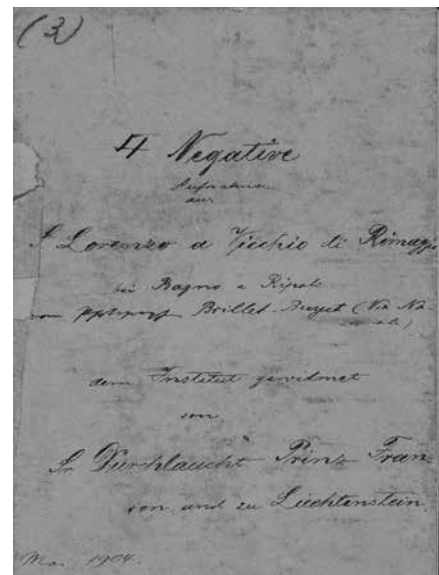 (3)
4 Negative
Aufnahmen
aus
S Lorenzo a Vicchio di Rimaggio
bei Bagno a Ripoli
vom Brillet-Buyet (Via Na-
dem Institut gewidmet
von
Sr. Durchlaucht Prinz Fran
von und zu Liechtenstein.
Mai 1904.